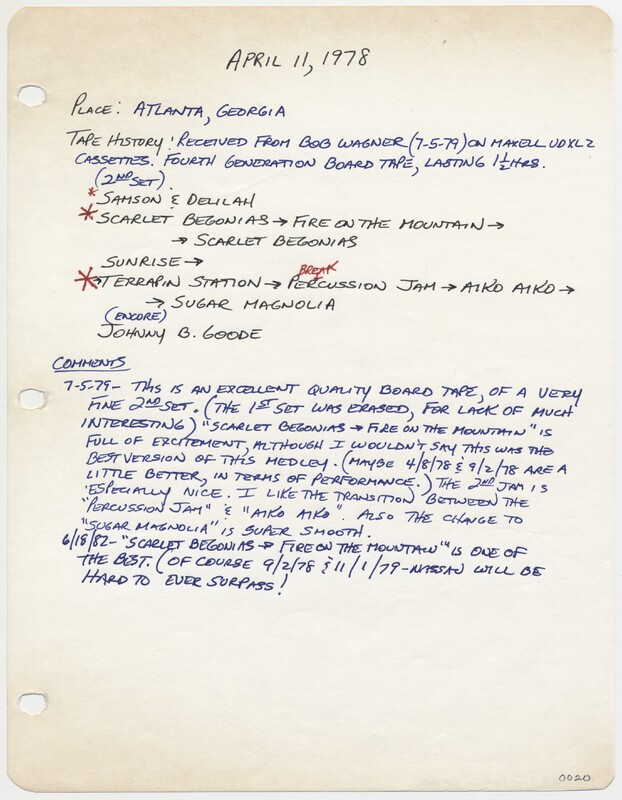 APRIL 11, 1978
PLACE: ATLANTA, GEORGIA
TAPE HISTORY: RECEIVED FROM BOB WAGNER (7-5-79) ON MAXELL UDXL2
CASSETTES. FOURTH GENERATION BOARD TAPE, LASTING 1½ HRS.
(2ND SET)
* SAMSON & DELILAH
* SCARLET BEGONIAS → FIRE ON THE MOUNTAIN →
→ SCARLET BEGONIAS
SUNRISE →
BREAK
* TERRAPIN STATION → PERCUSSION JAM → AIKO AIKO →
→ SUGAR MAGNOLIA
(ENCORE)
JOHNNY B. GOODE
COMMENTS
7-5-79- THIS IS AN EXCELLENT QUALITY BOARD TAPE, OF A VERY
FINE 2ND SET. (THE 1ST SET WAS ERASED, FOR LACK OF MUCH
INTERESTING) "SCARLET BEGONIAS → FIRE ON THE MOUNTAIN" IS
FULL OF EXCITEMENT, ALTHOUGH I WOULDN'T SAY THIS WAS THE
BEST VERSION OF THIS MEDLEY. (MAYBE 4/8/78 & 9/2/78 ARE A
LITTLE BETTER, IN TERMS OF PERFORMANCE.) THE 2ND JAM IS
ESPECIALLY NICE. I LIKE THE TRANSITION BETWEEN THE
"PERCUSSION JAM" & "AIKO AIKO". ALSO THE CHANGE TO
"SUGAR MAGNOLIA" IS SUPER SMOOTH.
6/18/82- "SCARLET BEGONIAS → FIRE ON THE MOUNTAIN" IS ONE OF
THE BEST. (OF COURSE 9/2/78 & 11/1/79-NASSAU WILL BE
HARD TO EVER SURPASS!
0020